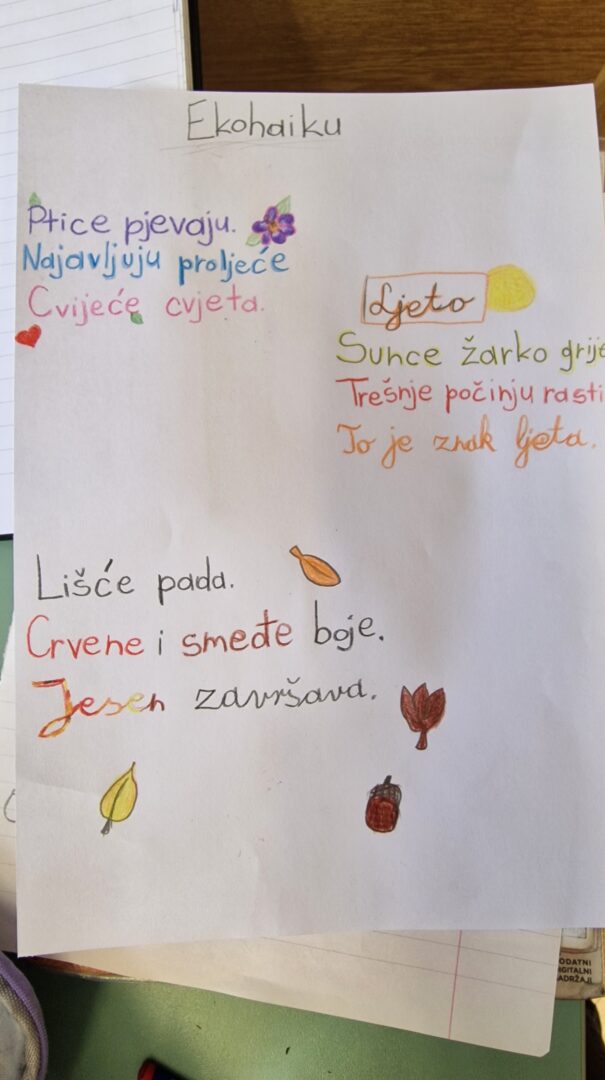 Ekohaiku
Ptice pjevaju.
Najavljuju proljeće
Cvijeće cvjeta.
Ljeto
Sunce žarko grije
Trešnje počinju rasti
To je znak ljeta.
Lišće pada.
Crvene i smeđe boje.
Jesen završava.
ODATNI
IGITALNI
ADRŽAJI